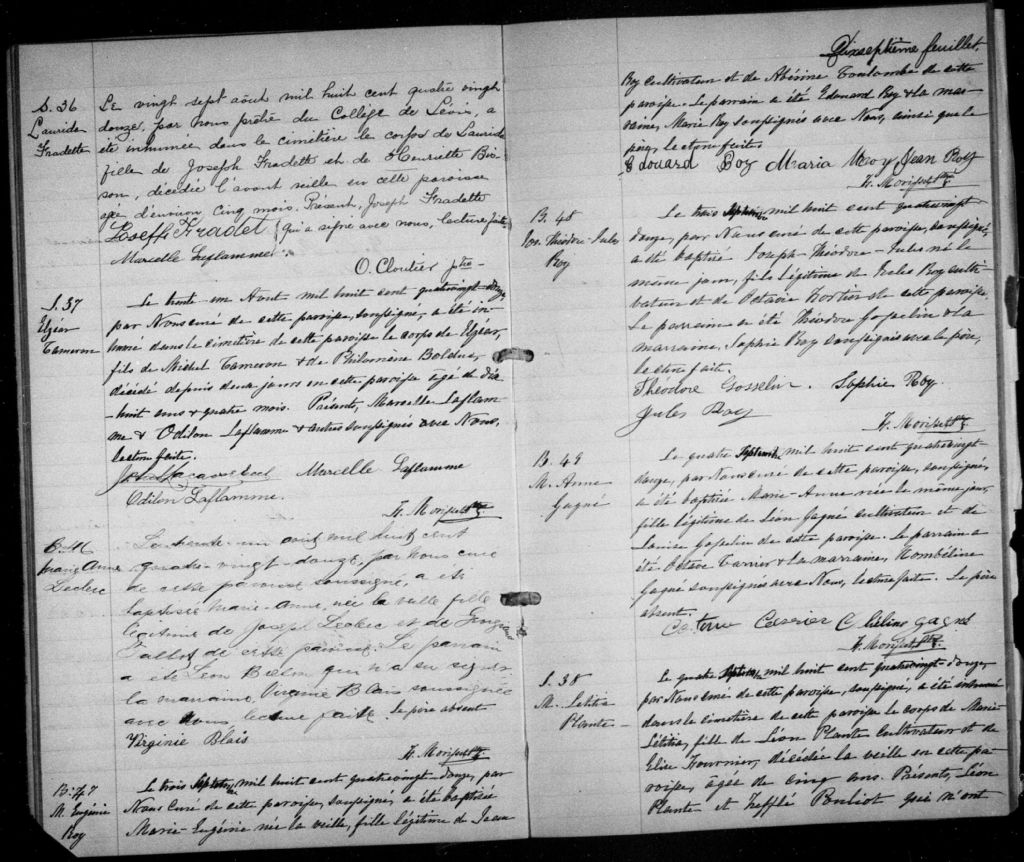 S. 36
Lauride
Fradette
Le vingt sept août mil huit cent quatre vingt
douze, par nous prêtre du Collège de Lévis, a
été inhumée dans le cimetière le corps de Lauride
fille de Joseph Fradette et de Henriette Bis-
son, décédée l'avant veille en cette paroisse
agé d'environ cinq mois. Présent, Joseph Fradette
Joseff Fradet qui a signé avec nous, lecture faite
Marcelle Laflamme
O. Cloutier ptre
S. 37
Elzéar
Cameron
Le trente un Aout mil huit cent quatrevingt-douze
par Nous curé de cette paroisse, soussigné, a été in-
humé dans le cimetière de cette paroisse le corps de Elzéar,
fils de Michel Cameron & de Philomène Bolduc,
décédé depuis deux jours en cette paroisse agé de dix-
huit ans & quatre mois. Présents, Marcelle Laflam-
me & Odilon Laflamme & autres soussignés avec Nous,
lecture faite.
Marcelle Laflamme
Odilon Laflamme.
B. 46
Marie Anne
Leclerc
Le trente-un août mil huit cent
quatre-vingt-douze, par nous curé
de cette paroisse soussigné, a été
baptisée Marie-Anne, née la veille fille
légitime de Joseph Leclerc et de
de cette paroisse. Le parrain
a été Léon qui n'a su signer
la marraine, Virginie Blais soussignée
avec nous, lecture faite. Le père absent
Virginie Blais
B. 47
M. Eugénie
Roy
Le trois Septembre mil huit cent quatrevingt-douze, par
Nous Curé de cette paroisse, soussigné, a été baptisée
Marie-Eugénie née la veille, fille légitime de Jean
Dixseptième feuillet.
Roy cultivateur et de de cette
paroisse. Le parrain a été Edouard Roy & la mar-
raine, Marie Roy soussignés avec Nous, ainsi que le
père, lecture faite.
Edouard Roy Maria Roy Jean Roy
B. 48
Jos. Théodore-Jules
Roy
Le trois Septembre mil huit cent quatrevingt-
douze, par Nous curé de cette paroisse, soussigné,
a été baptisé Joseph-Théodore-Jules né le
même jour, fils légitime de Jules Roy culti-
vateur et de Octavie Fortier de cette paroisse.
Le parrain a été Théodore Gosselin & la
marraine, Sophie Roy soussignés avec le père,
lecture faite.
Théodore Gosselin. Sophie Roy.
Jules Roy
B. 49
M. Anne
Gagné
Le quatre Septembre mil huit cent quatrevingt-
douze, par Nous curé de cette paroisse, soussigné,
a été baptisée Marie-Anne née le même jour,
fille légitime de Léon Gagné cultivateur et de
Louise Gosselin de cette paroisse. Le parrain a
été Octave Carrier & la marraine, Hombéline
Gagné soussignés avec Nous, lecture faite. Le père
absent.
Carrier Gagné
S. 38
M. Létitia
Plante
Le quatre Septembre mil huit cent quatrevingt-douze,
par Nous curé de cette paroisse, soussigné, a été inhumé
dans le cimetière de cette paroisse le corps de Marie-
Létitia, fille de Léon Plante Cultivateur et de
Elise Fournier, décédée la veille en cette pa-
roisse, agée de cinq ans. Présents, Léon
Plante et Pouliot qui n'ont